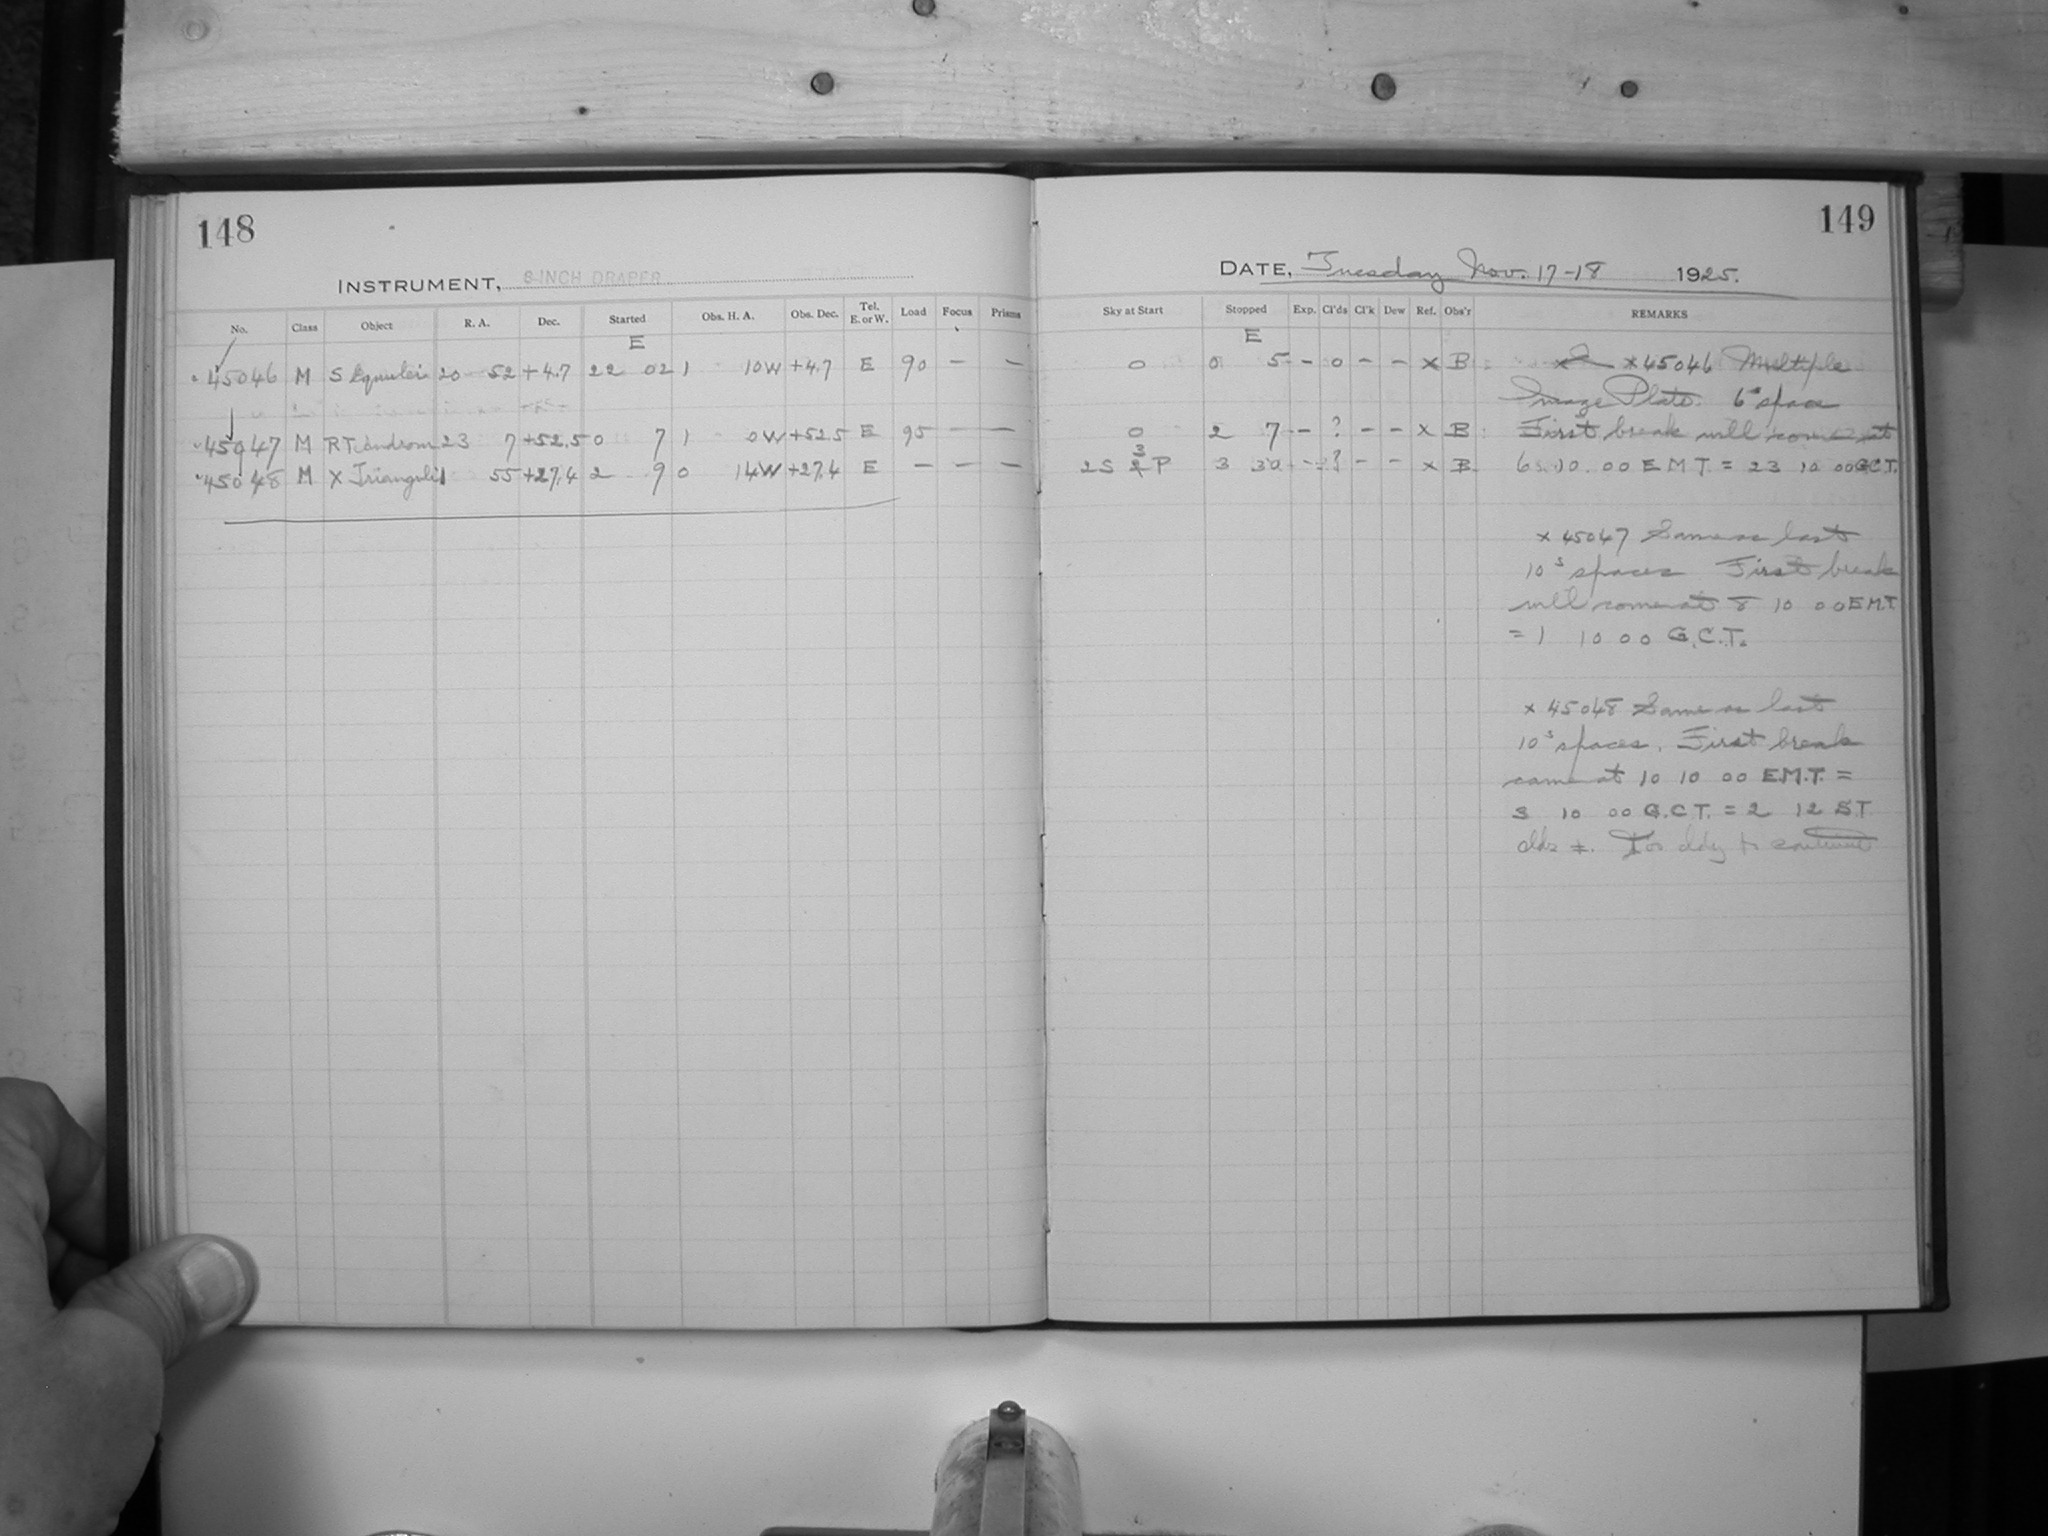 148
INSTRUMENT, 8-INCH DRAPER
No. Class Object R. A. Dec. Started Obs. H. A. Obs. Dec. Tel. E. or W. Load Focus Prisms
E
45046 M S Equulei 20 52 +4.7 22 02 1 10W +4.7 E 90 – –
45047 M RT Androm 23 7 +52.5 0 7 1 0W +52.5 E 95 – –
45048 M X Trianguli 1 55 +27.4 2 9 0 14W +27.4 E – – –
149
DATE, Tuesday Nov. 17-18 1925.
Sky at Start Stopped Exp. Cl'ds Cl'k Dew Ref. Obs'r REMARKS
E
0 0 5 – 0 – – x B x 45046 Multiple
Image Plate. 6s space
0 2 7 – ? – – x B First break will come at
2S 3 P 3 30 – ? – – x B 6 10.00 E.M.T. = 23 10 00 G.C.T.
x 45047 Same as last
10s spaces First break
will come at 8 10 00 E.M.T.
= 1 10 00 G.C.T.
x 45048 Same as last
10s spaces. First break
came at 10 10 00 E.M.T. =
3 10 00 G.C.T. = 2 12 S.T.
clds ±. Too cldy to continue